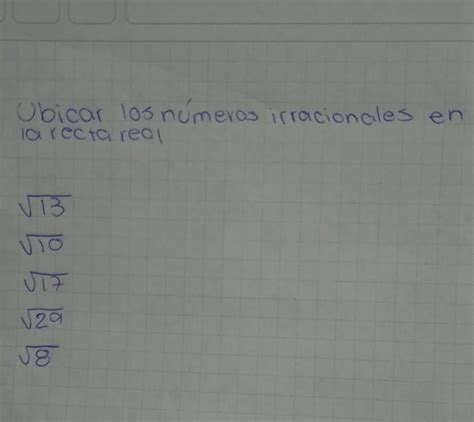 Ubicar los números irracionales en
la recta real
√13
√10
√17
√29
√8